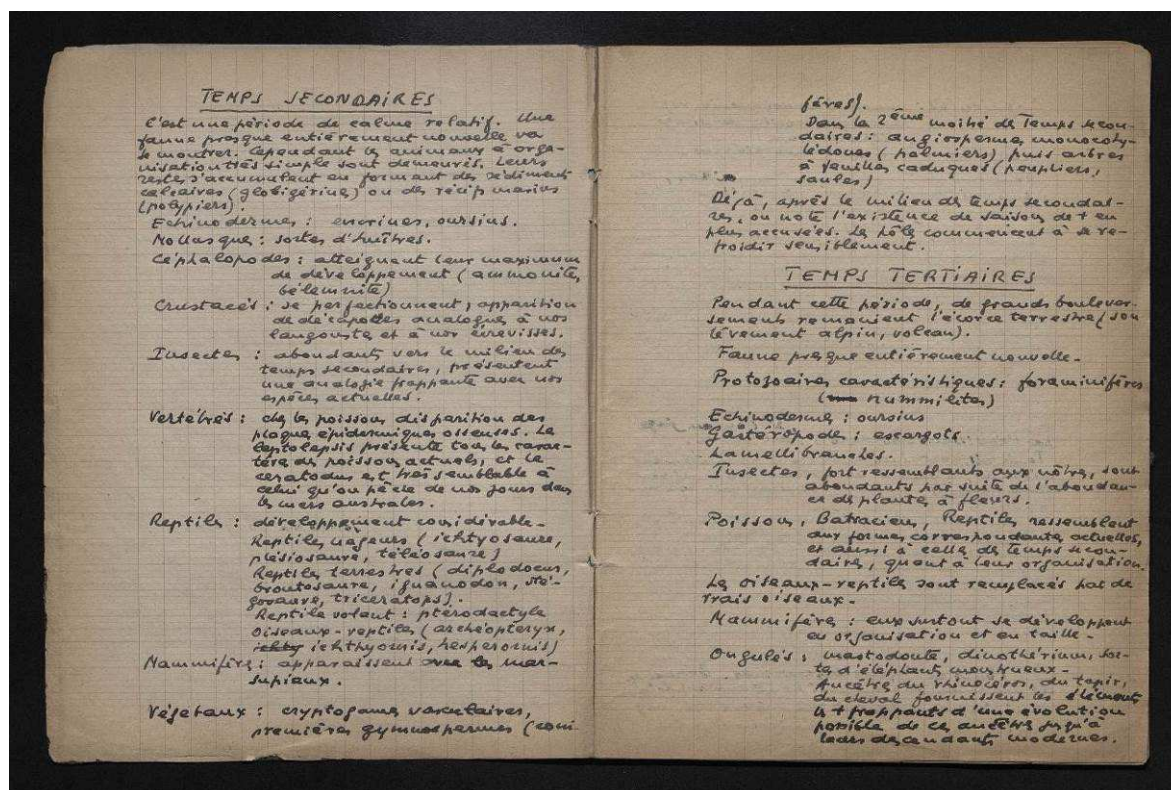 TEMPS SECONDAIRES
C'est une période de calme relatif. Une
faune presque entièrement nouvelle va
se montrer. Cependant les animaux à orga-
nisation très simple sont demeurés. Leurs
restes s'accumulent en formant des sédiments
calcaires (globigérines) ou des récifs marins
(polypiers).
Echinodermes : encrines, oursins.
Mollusques : sortes d'huîtres.
Céphalopodes : atteignent leur maximum
de développement (ammonites,
bélemnites)
Crustacés : se perfectionnent ; apparition
de décapodes analogues à nos
langoustes et à nos écrevisses.
Insectes : abondants vers le milieu des
temps secondaires, présentent
une analogie frappante avec nos
espèces actuelles.
Vertébrés : chez les poissons disparition des
plaques épidermiques osseuses. Le
leptolepsis présente tous les carac-
tères des poissons actuels, et le
ceratodus est très semblable à
celui qu'on pêche de nos jours dans
les mers australes.
Reptiles : développement considérable.
Reptiles nageurs (ichtyosaure,
plésiosaure, téléosaure)
Reptiles terrestres (diplodocus,
brontosaure, iguanodon, sté-
gosaure, triceratops).
Reptile volant : ptérodactyle
Oiseaux-reptiles (archéoptéryx,
ichty ichthyornis, hesperornis)
Mammifères : apparaissent avec les mar-
supiaux.
Végétaux : cryptogames vasculaires,
premières gymnospermes (coni
fères).
Dans la 2ème moitié des Temps secon-
daires : angiospermes monocoty-
lédones (palmiers) puis arbres
à feuilles caduques (peupliers,
saules)
Déjà, après le milieu des temps secondai-
res, on note l'existence de saisons de + en
plus accusées. Les pôles commencent à se re-
froidir sensiblement.
TEMPS TERTIAIRES
Pendant cette période, de grands boulever-
sements remanient l'écorce terrestre (sou
lèvement alpin, volcans).
Faune presque entièrement nouvelle.
Protozoaires caractéristiques : foraminifères
(nummilites)
Echinodermes : oursins
Gastéropodes : escargots
Lamellibranches.
Insectes, fort ressemblants aux nôtres, sont
abondants par suite de l'abondan-
ce de plantes à fleurs.
Poissons, Batraciens, Reptiles ressemblent
aux formes correspondantes actuelles,
et aussi à celles des temps secon-
daires, quant à leur organisation.
Les oiseaux-reptiles sont remplacés par de
vrais oiseaux.
Mammifères : eux surtout se développent
en organisation et en taille.
Ongulés : mastodonte, dinothérium, sor-
tes d'éléphants monstrueux.
Ancêtres du rhinocéros, du tapir,
du cheval fournissent les éléments
les + frappants d'une évolution
possible de ces ancêtres jusqu'à
leurs descendants modernes.